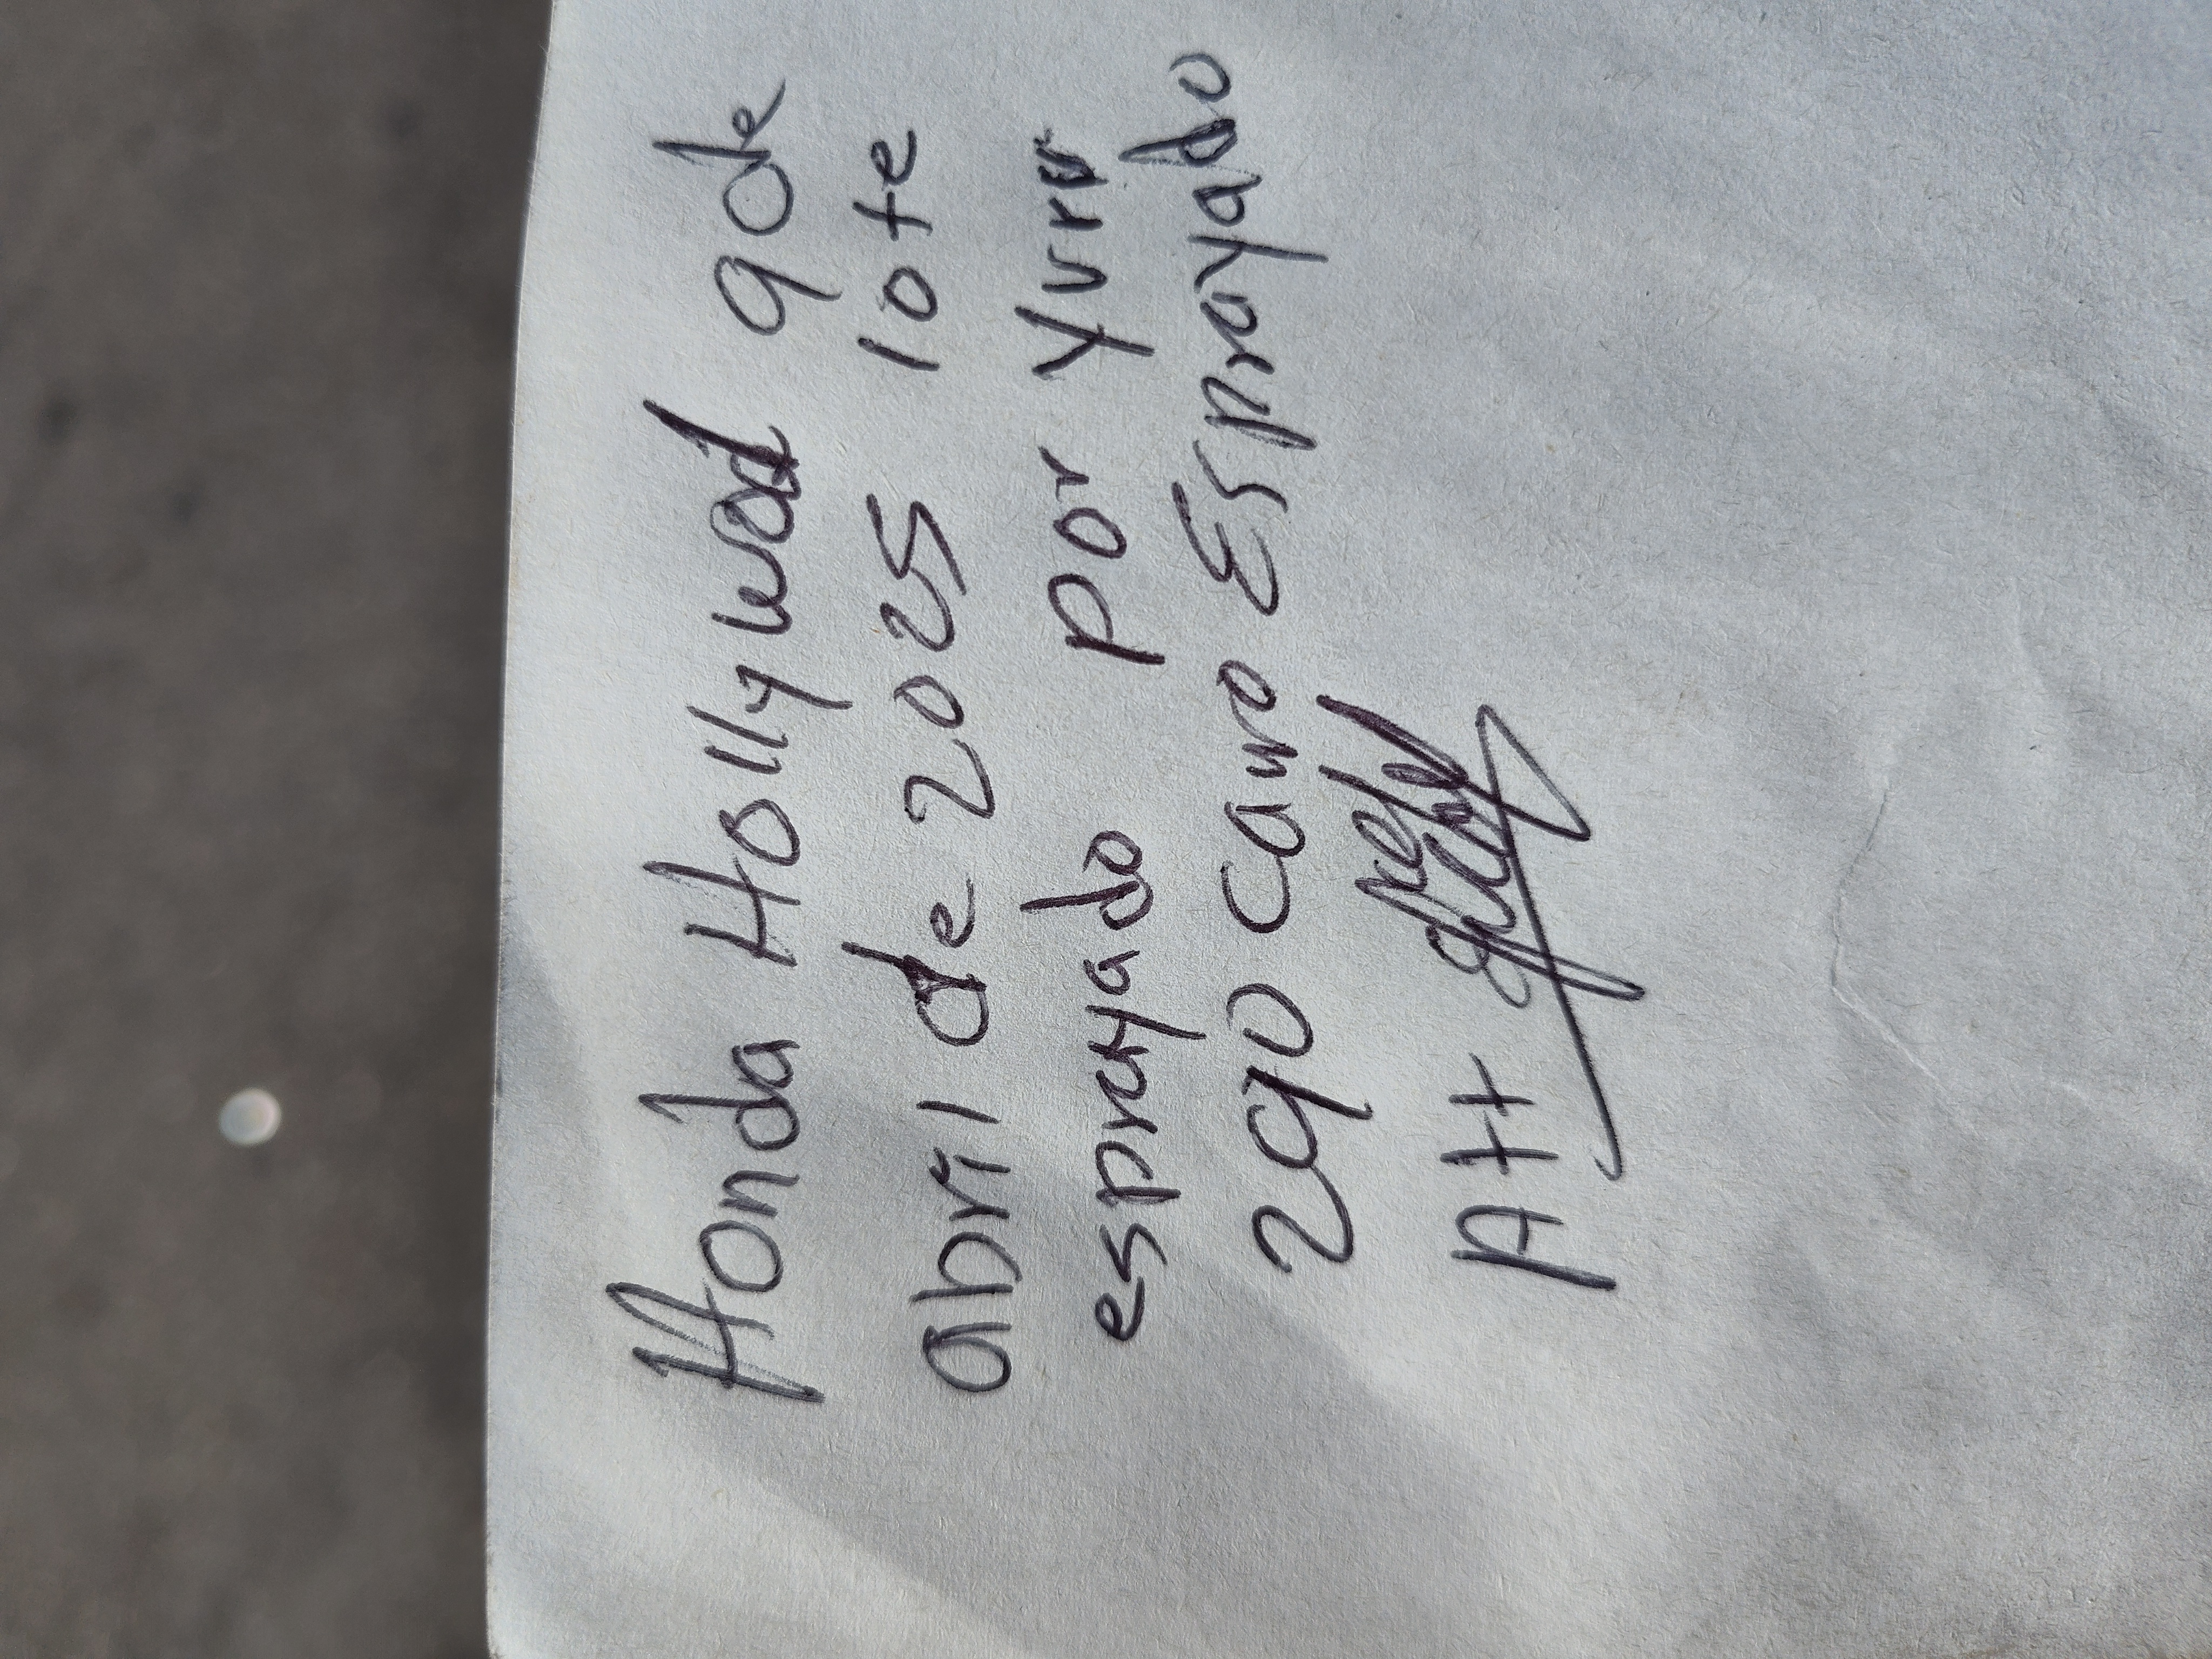 Honda Hollywod 9 de
abril de 2025 lote
esprayado por Yurro
290 carro Esprayado
Att